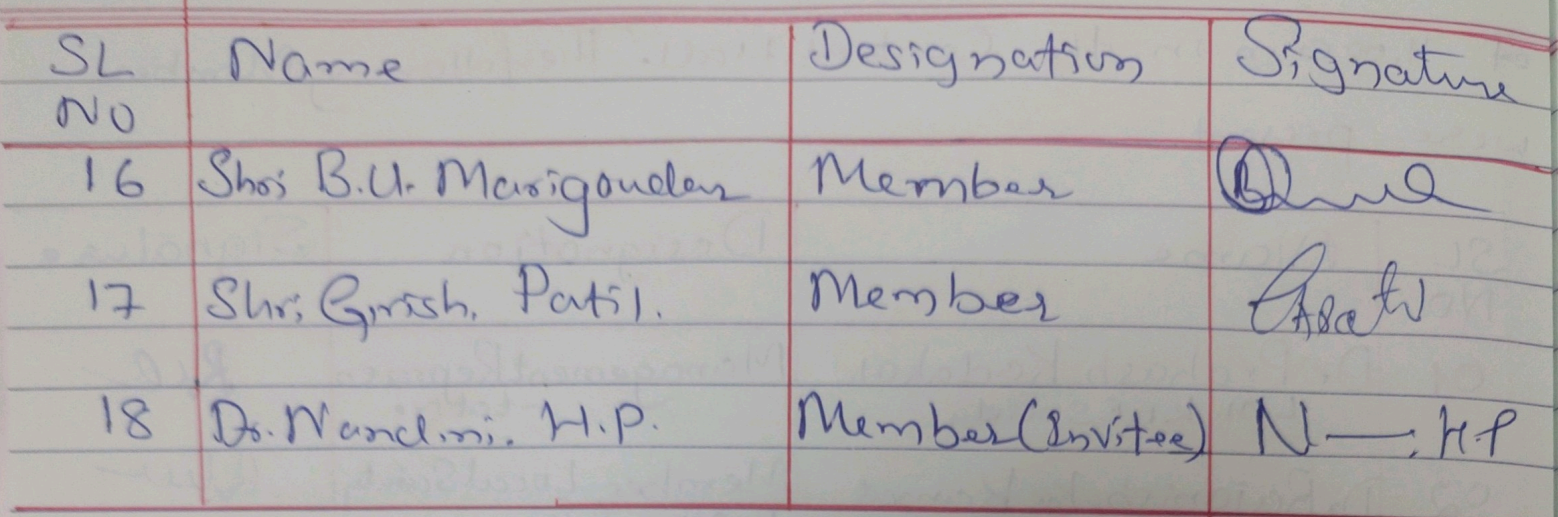 SL Name Designation Signature
NO
16 Shri B.U. Marigoudar Member
17 Shri Girish. Patil. Member
18 Dr. Nandini. H.P. Member (Invitee) N—. H.P